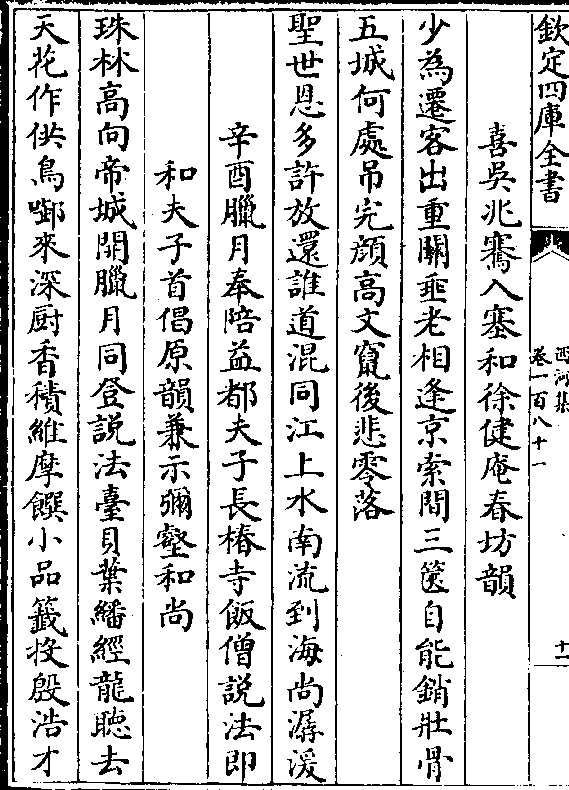 欽定四庫全書
西河集
卷一百八十一
十二
喜吳兆騫入塞和徐健庵春坊韻
少為遷客出重關垂老相逢京索間三篋自能銷壯骨
五城何處吊完顔高文竄後悲零落
聖世恩多許放還誰道混同江上水南流到海尚潺湲
辛酉臘月奉陪益都夫子長椿寺飯僧説法即
和夫子首倡原韻兼示彌壑和尚
珠林高向帝城開臘月同登説法臺貝葉繙經龍聽去
天花作供鳥啣來深厨香積維摩饌小品籤投殷浩才